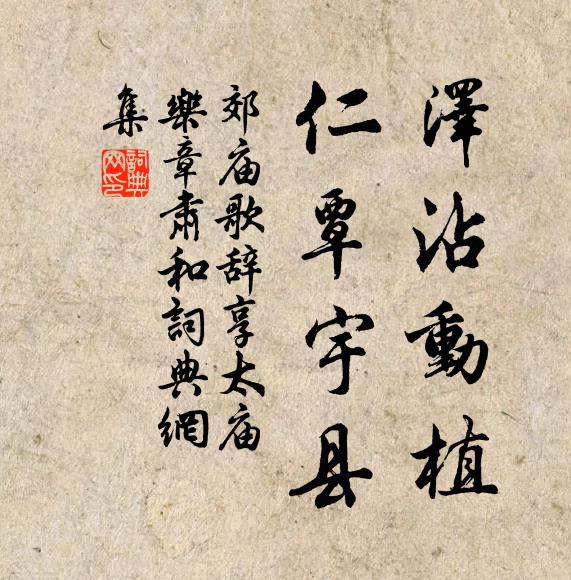 澤沾動植
仁覃宇县
郊庙歌辞享太庙
樂章肅和詞典網
集
詞典
网印